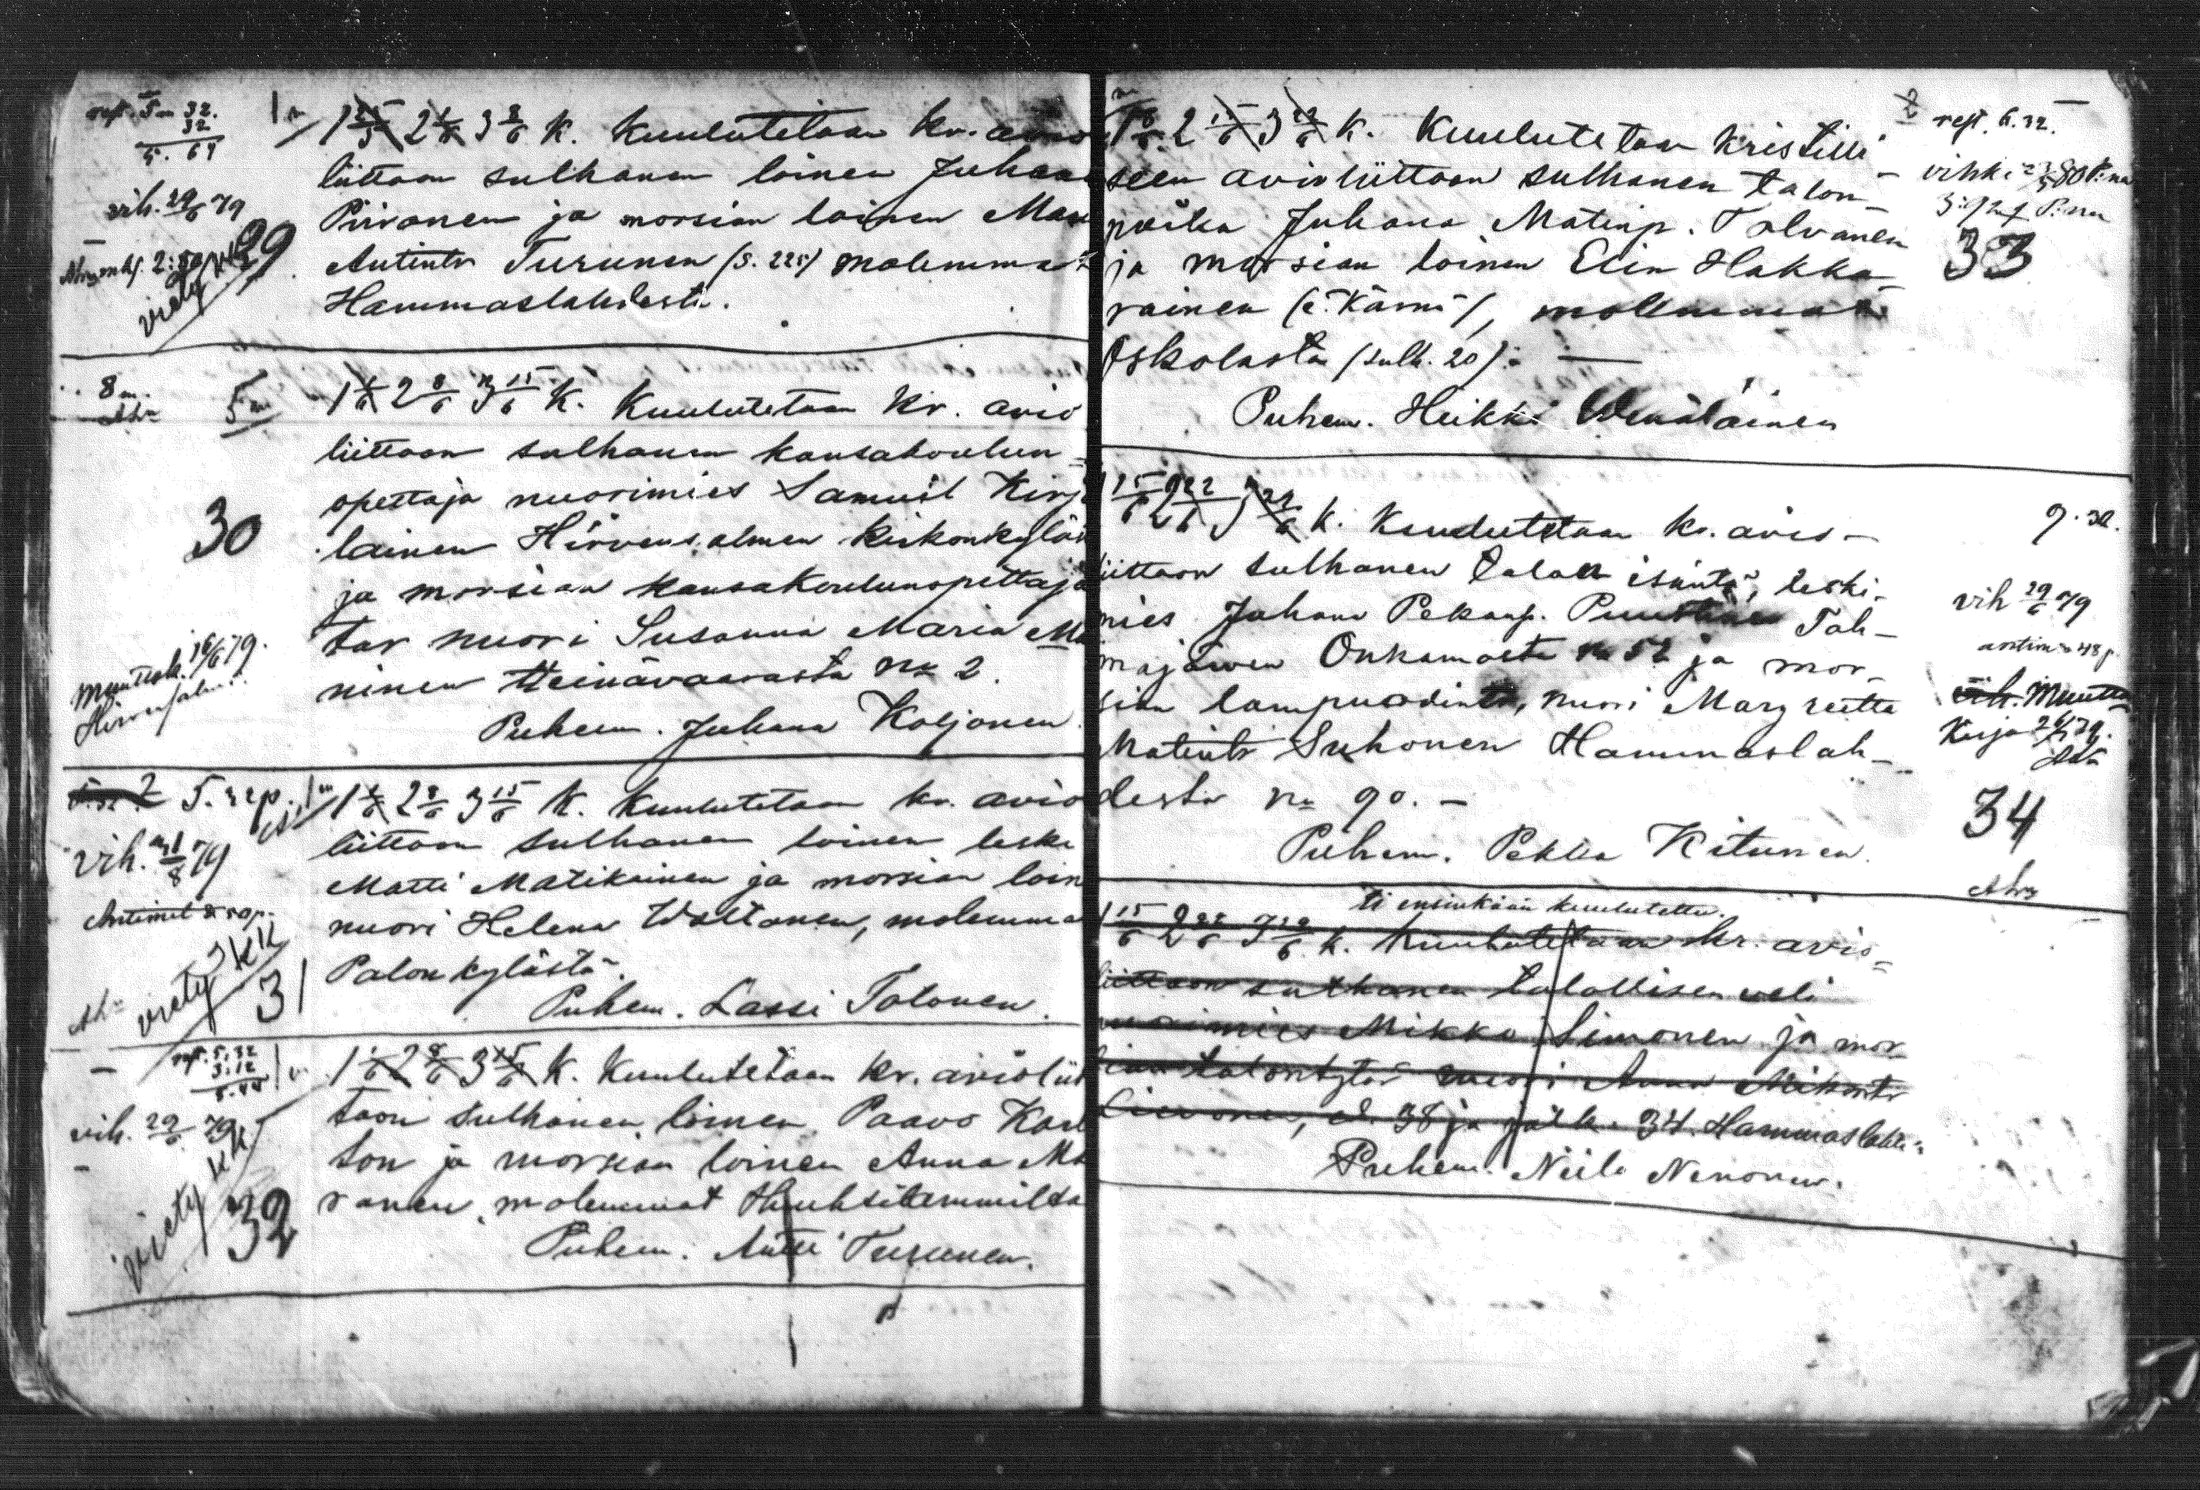 rest. 5 m 32.
32
5. 64
vih. 29/6 79
29
viety KK
1 25/5 2 1/6 3 8/6 K. Kuulutetaan kr. avio
liittoon sulhanen loinen Juhana
Piironen ja morsian loinen Mari
Antintr Turunen (S. 225) molemmat
Hammaslahdesta.
8 m.
5 m
30
Muuttok. 16/6 79.
Hirvensalm.
1 1/6 2 8/6 3 15/6 K. Kuulutetaan kr. avio
liittoon sulhanen kansakoulun-
opettaja nuorimies Samuel Kirj
lainen Hirvensalmen kirkonkylän
ja morsian kansakoulunopettaja
tar nuori Susanna Maria Mu
ninen Heinävaarasta No 2.
Puhem. Juhana Koljonen.
vih. 31/8 79
viety KK
31
1 1/6 2 8/6 3 15/6 K. Kuulutetaan kr. avio
liittoon sulhanen loinen leski
Matti Matikainen ja morsian loin
nuori Helena Waltonen, molemma
Palon kylästä.
Puhem. Lassi Tolonen.
rest. 5.32
3.12
8.44
vih. 29/6 79
viety KK
32
1 1/6 2 8/6 3 15/6 K. Kuulutetaan kr. avioliit
toon sulhanen loinen Paavo Kar
ton ja morsian loinen Anna Ma
ranen, molemmat Huuhtilammilta
Puhem. Antti Turunen.
1 8/6 2 15/6 3 22/6 K. Kuulutetaan kristilli-
seen avioliittoon sulhanen talon-
poika Juhana Matinp. Tolvanen
ja morsian loinen Elin Hakka-
rainen (e. Kärnä), molemmat
Oskolasta (sulh. 20).
Puhem. Heikki Wenäläinen
rest. 6.32.
33
1 15/6 2 22/6 3 29/6 K. Kuulutetaan kr. avio-
liittoon sulhanen talon isäntä, leski-
mies Juhana Pekanp. Puustinen Toh-
majärven Onkamosta No 52 ja mor-
sian lampuodintr, nuori Margreetta
Matintr Suhonen Hammaslah-
desta No 90. -
Puhem. Pekka Kitunen.
9.32.
vih 29/6 79
vih. Muutto-
Kirja 29/6 79.
34
ei ensinkään kuulutettu.
1 15/6 2 22/6 3 29/6 K. Kuulutetaan kr. avio-
liittoon sulhanen talollisen veli
nuorimies Mikko Simonen ja mor
sian talontytär nuori Anna Mikontr
38 ja 34 Hammaslahti.
Puhem. Niilo Nenonen.